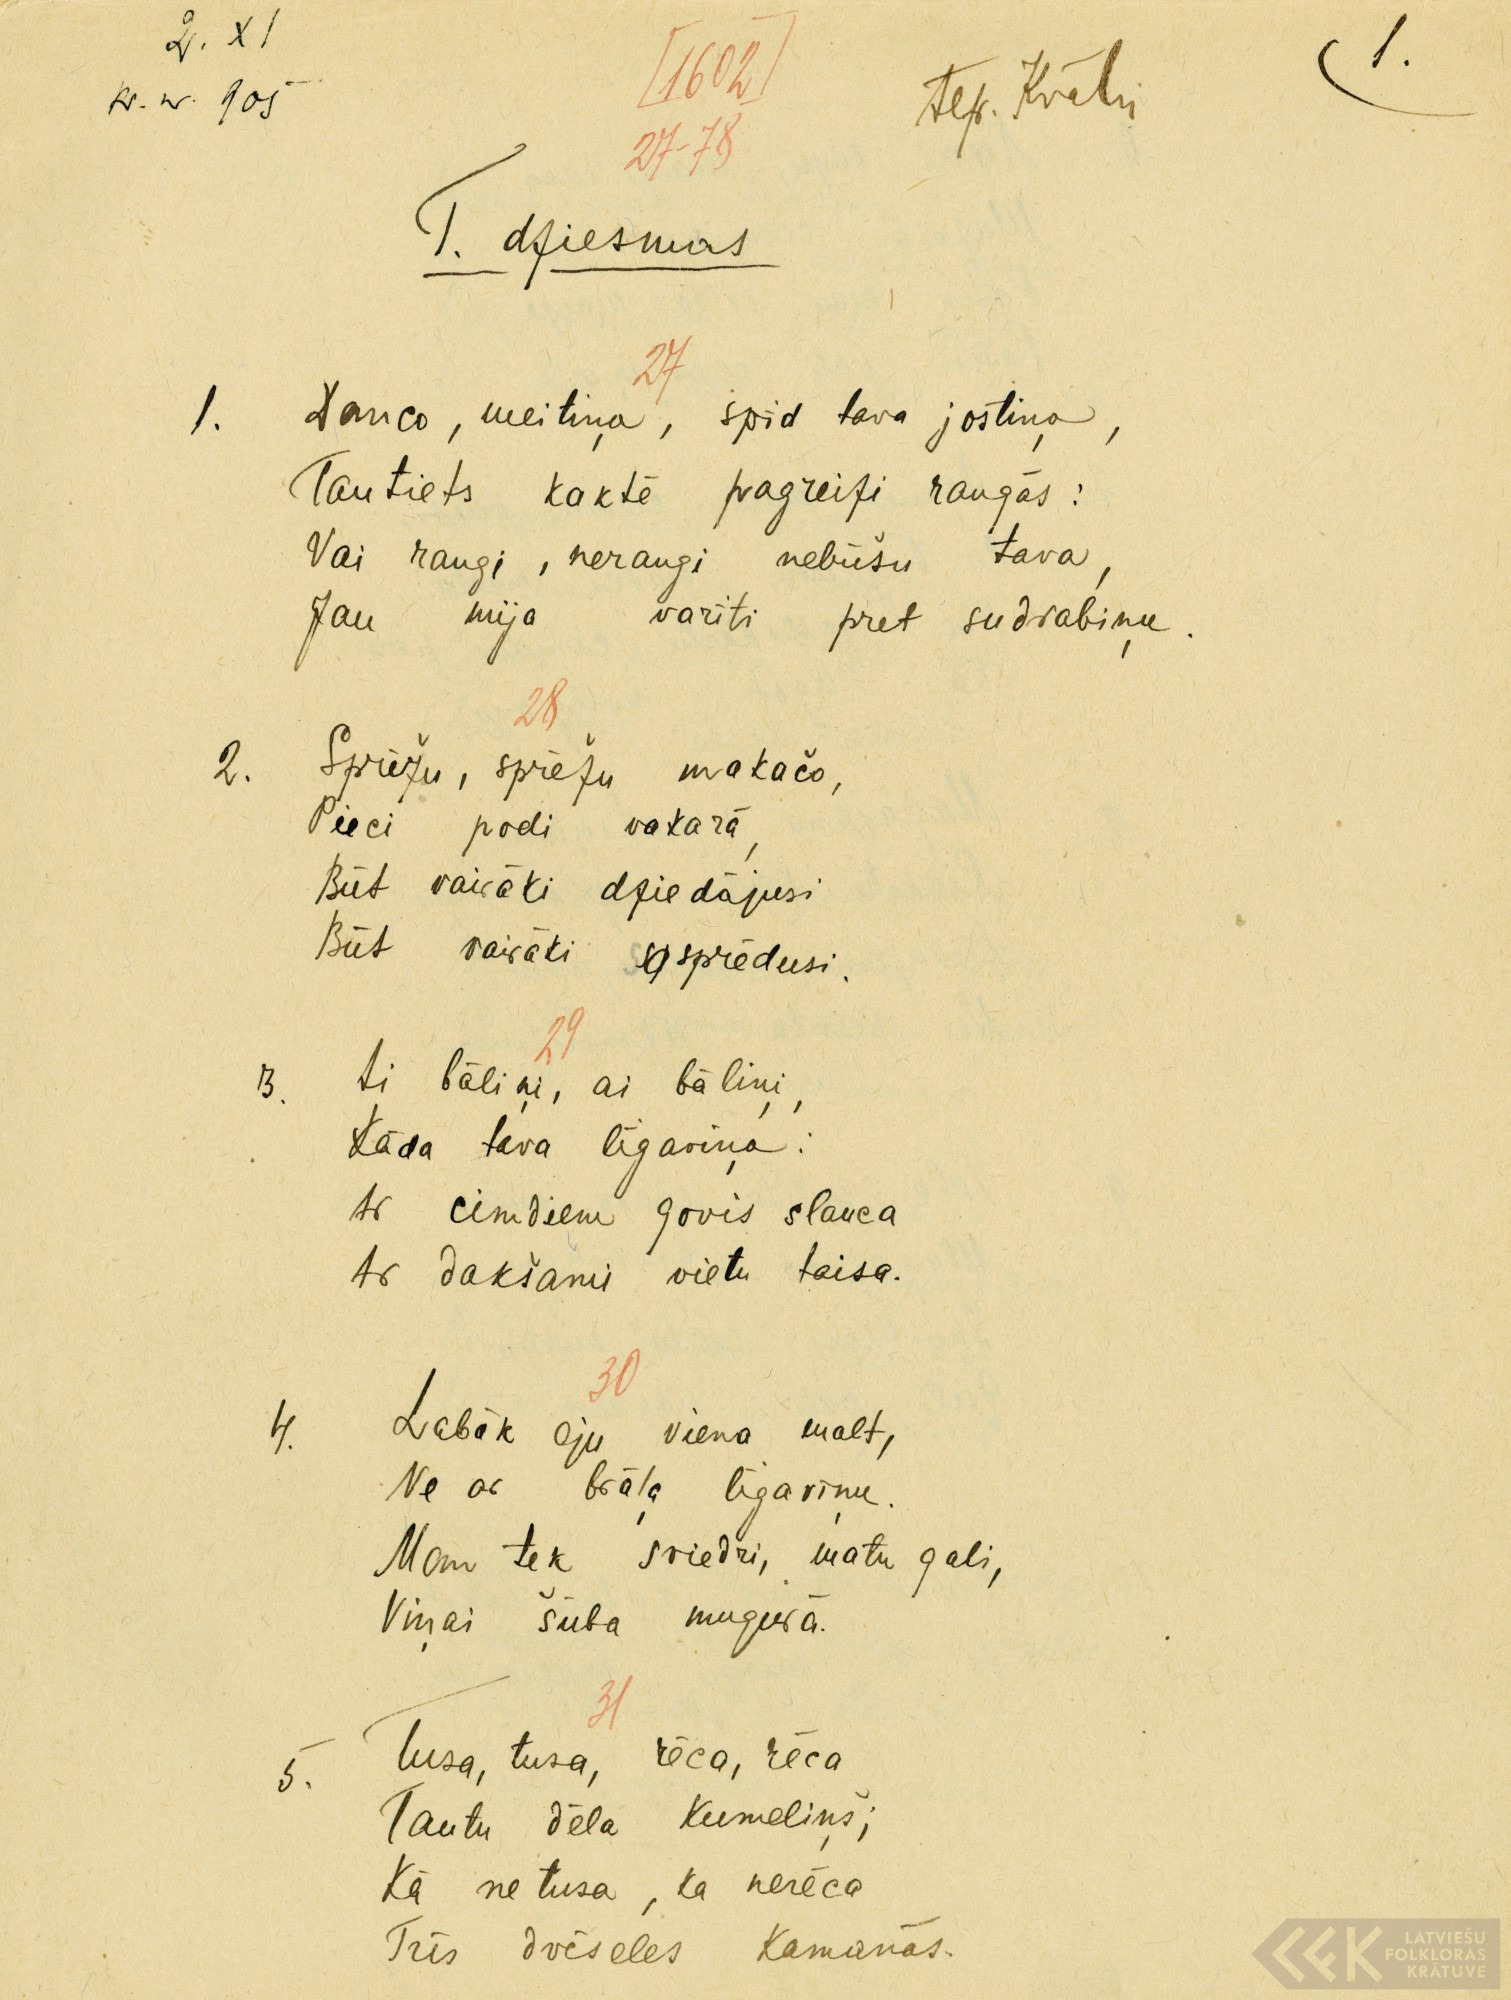 2. XI
kr. nr. 905
[1602]
27-78
1.
T. dziesmas
27
1. Danco, meitiņa, spīd tava jostiņa,
Tautiets kaktē pagreizi raugās:
Vai raugi, neraugi nebūšu tava,
Jau mija varīti pret sudrabiņu.
28
2. Sprēžu, sprēžu makačo,
Pieci podi vakarā,
Būt vairāki dziedājusi
Būt vairāki sprēdusi.
29
3. Ai bāliņi, ai bāliņi,
Kāda tava līgaviņa:
Ar cimdiem govis slauca
Ar dakšami vietu taisa.
30
4. Labāk eju viena malt,
Ne ar brāļa līgaviņu.
Man tek sviedri, matu gali,
Viņai šūba mugurā.
31
5. Tusa, tusa, rēca, rēca
Tautu dēla kumeliņš;
Kā ne tusa, ka nerēca
Trīs dvēseles kamanās.
LATVIEŠU
FOLKLORAS
KRĀTUVE